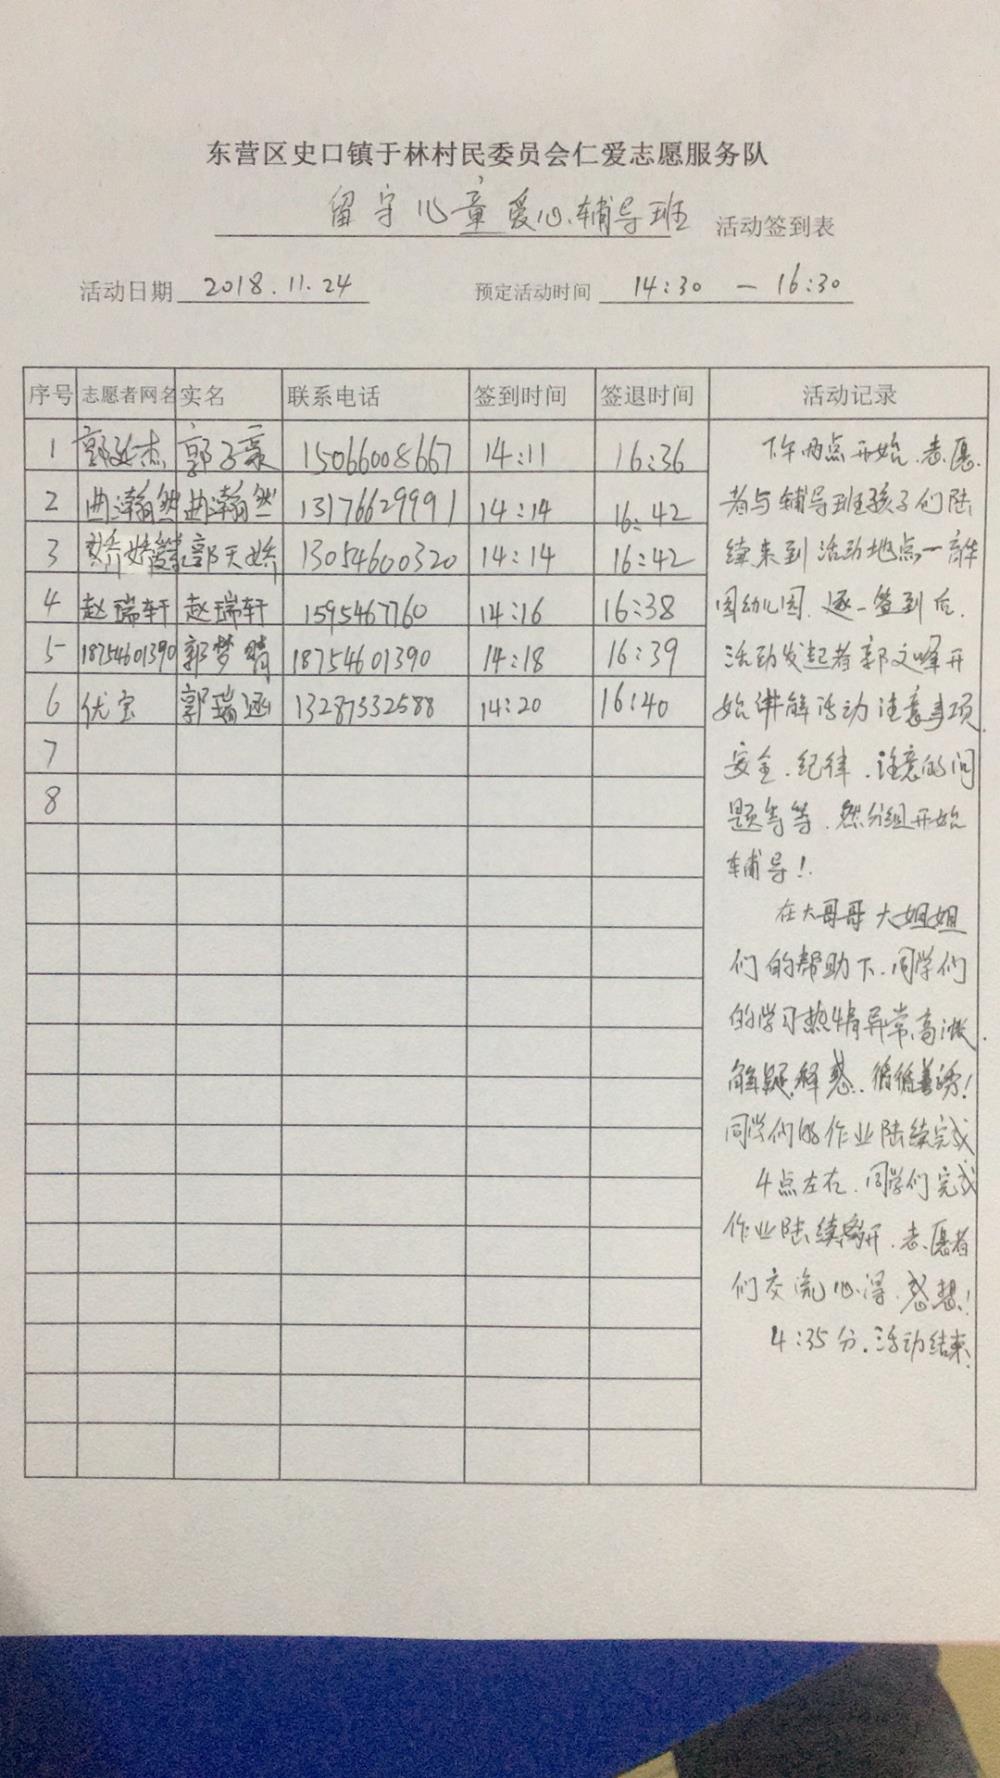 东营区史口镇于林村民委员会仁爱志愿服务队
留守儿童爱心辅导班 活动签到表
活动日期 2018.11.24 预定活动时间 14:30 — 16:30
序号 志愿者网名 实名 联系电话 签到时间 签退时间 活动记录
1 郭延杰 郭子豪 15066008667 14:11 16:36
2 曲瀚然 曲瀚然 13176629991 14:14 16:42
3 郭天娇 13054600320 14:14 16:42
4 赵瑞轩 赵瑞轩 1595467760 14:16 16:38
5 18754601390 郭梦晴 18754601390 14:18 16:39
6 优宝 郭瑞涵 13287332588 14:20 16:40
7
8
下午两点开始、志愿
者与辅导班孩子们陆
续来到活动地点一
园幼儿园、逐一签到后、
活动发起者郭文峰开
始讲解活动注意事项、
安全、纪律、注意的问
题等等、然分组开始
辅导!
在大哥哥大姐姐
们的帮助下、同学们
的学习热情异常高涨、
解疑释惑、循循善诱!
同学们的作业陆续完成
4点左右、同学们完成
作业陆续离开、志愿者
们交流心得、感想!
4:35分、活动结束